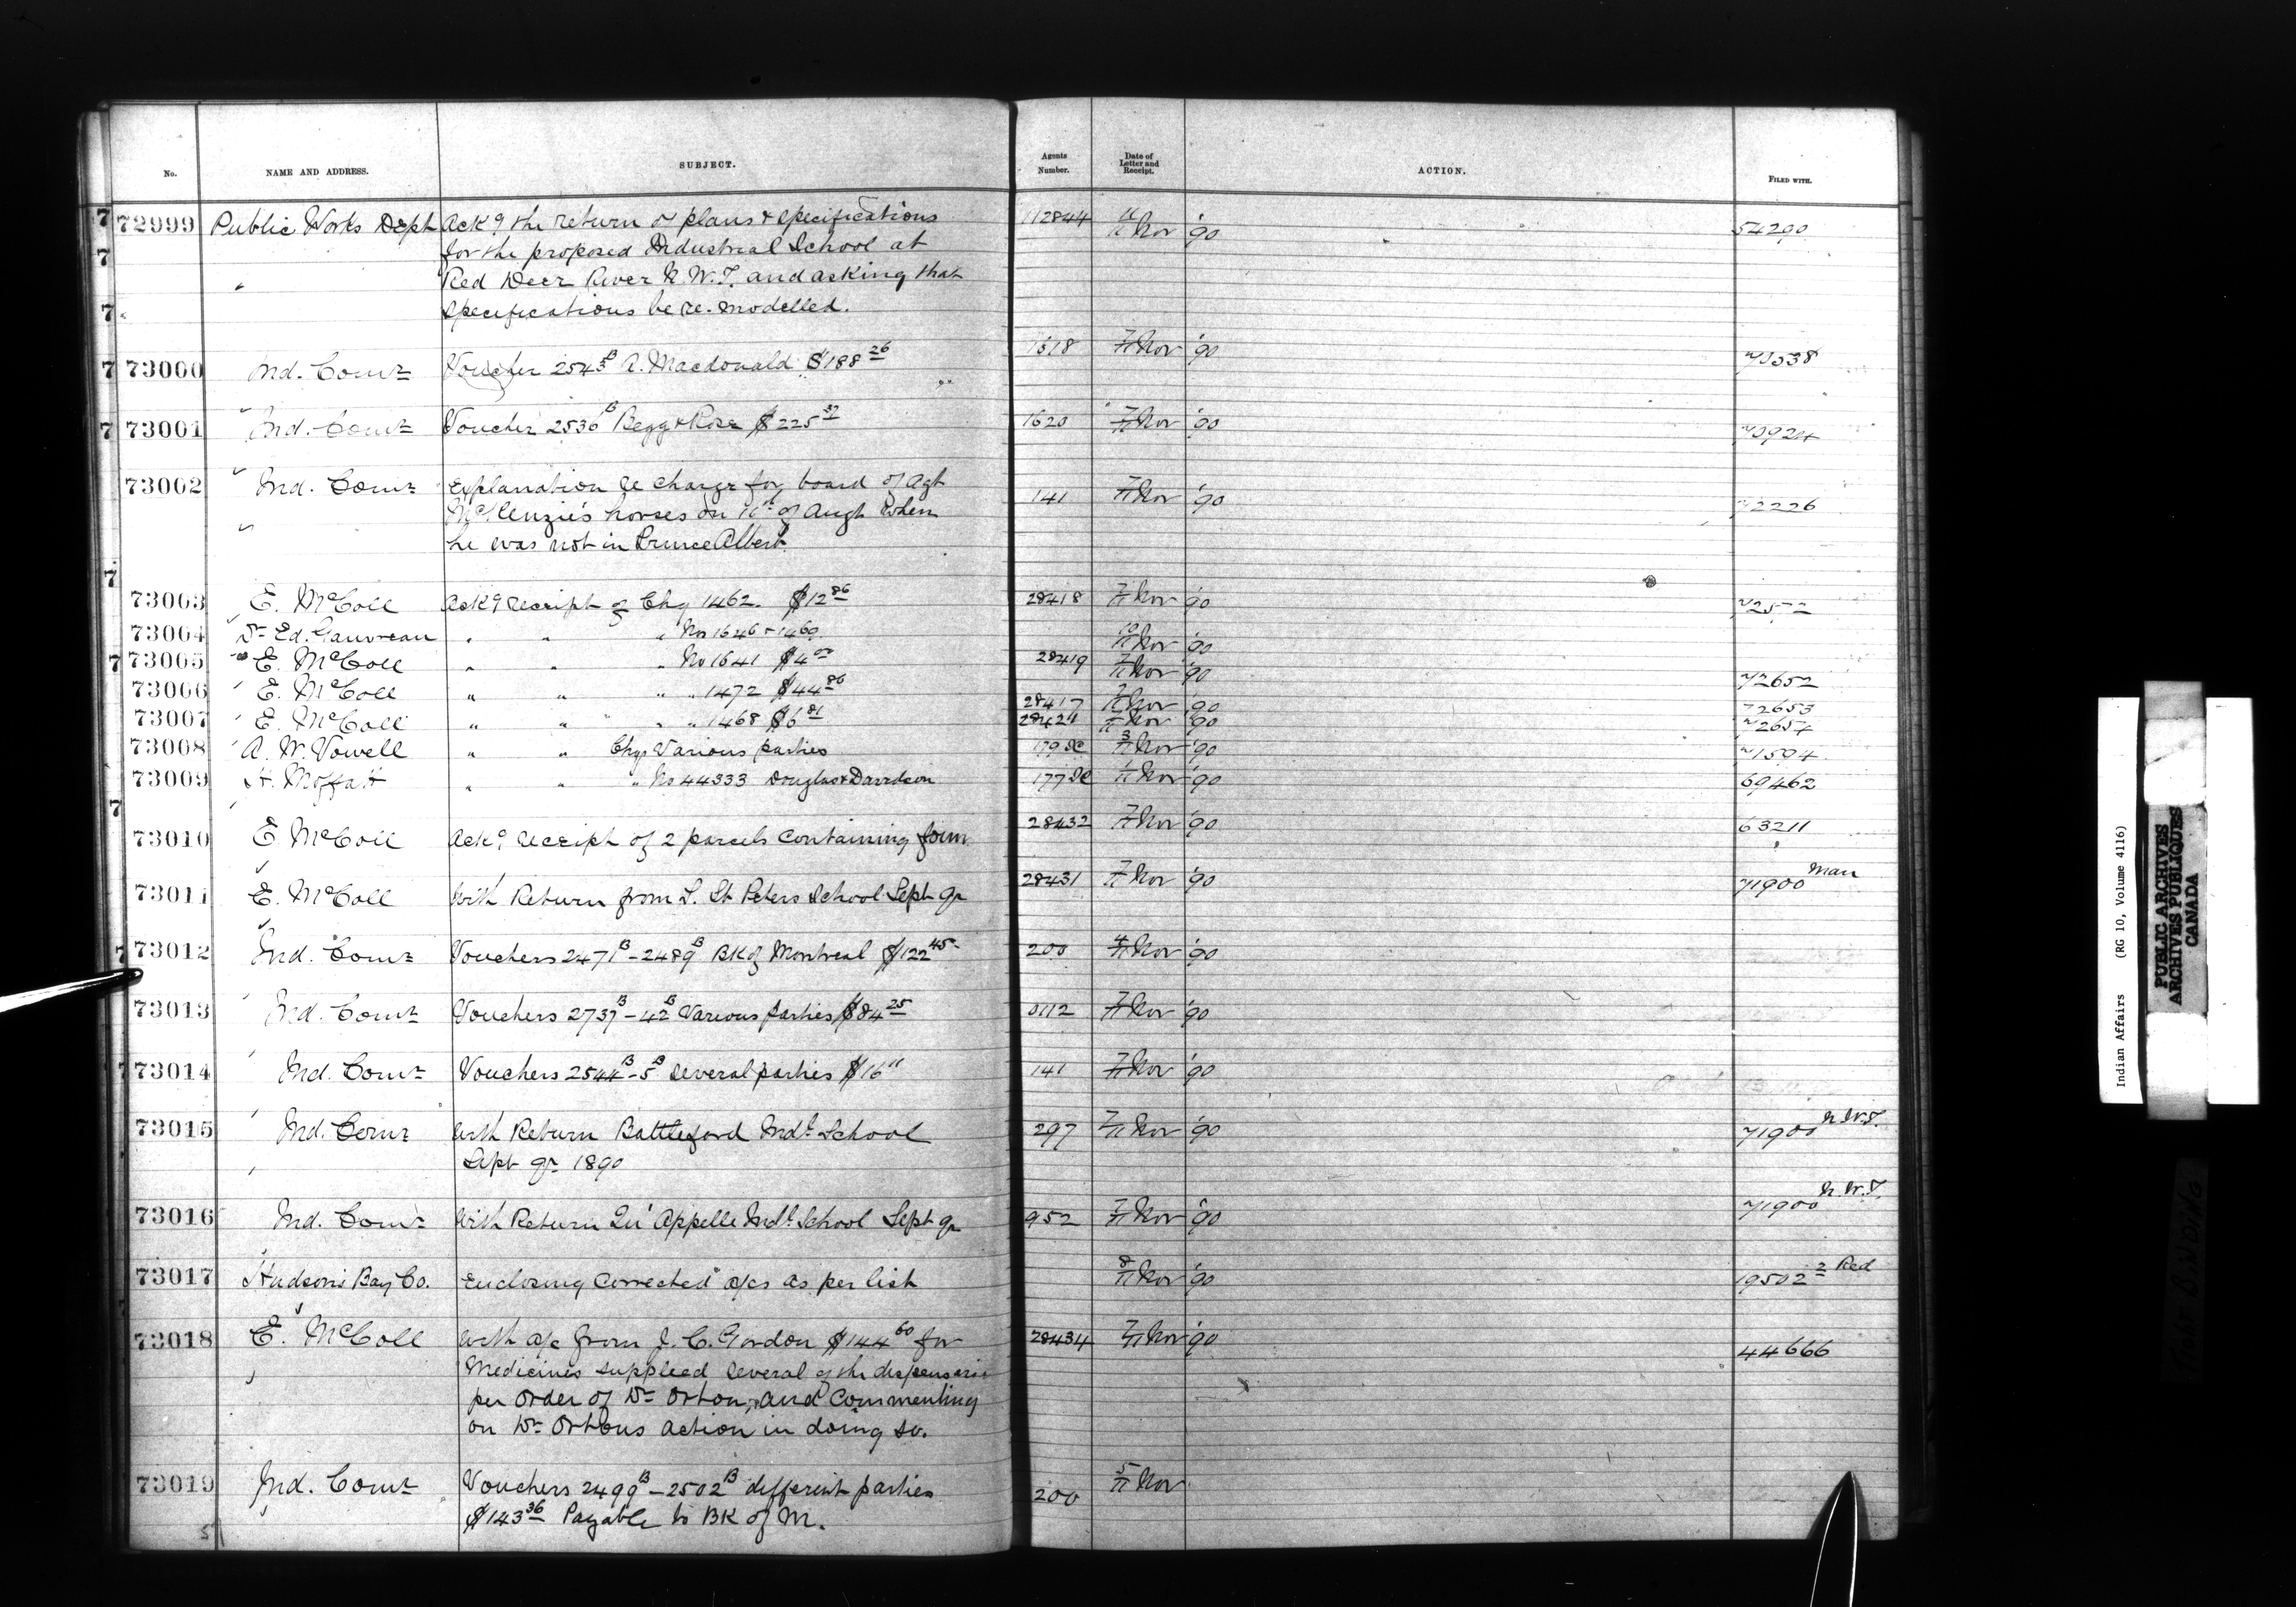 No. NAME AND ADDRESS. SUBJECT. Agents Number. Date of Letter and Receipt. ACTION. FILED WITH.
72999 Public Works Dept Ackg the return of plans & specifications 112844 11/11 Nov '90 54290
for the proposed Industrial School at
Red Deer River N.W.T. and asking that
specifications be re-modelled.
73000 Ind. Comr Voucher 2543B A. Macdonald $188 26 1618 7/11 Nov '90
73001 Ind. Comr Voucher 2536B Begg & Rose $225 1620 7/11 Nov '90
73002 Ind. Comr Explanation re charge for board of Agt 141 7/11 Nov '90 72226
McKenzie's horses on of Augt when
he was not in Prince Albert
73003 E. McColl Ackg receipt of Chq 1462. $12 86 28418 7/11 Nov '90 72572
73004 Dr Ed. Gauvreau " " " No 1646 & 1469 10/11 Nov '90
73005 E. McColl " " " No 1641 $4 00 28419 7/11 Nov '90 72652
73006 E. McColl " " " " 1472 $44 86 28417 7/11 Nov '90 72653
73007 E. McColl " " " " 1468 $6 81 28421 11 Nov '90 72654
73008 A. W. Vowell " " Chqs Various parties 179 3/11 Nov '90 71594
73009 H. Moffatt " " " No 44333 Douglas & Davidson 177 11 Nov '90 69462
73010 E McColl Ackg receipt of 2 parcels containing form 28432 7/11 Nov '90 63211
73011 E. McColl With Return from S. St Peters School Sept qr 28431 7/11 Nov '90 71900 Man
73012 Ind. Comr Vouchers 2471B - 2489B BK of Montreal $122 45 200 4/11 Nov '90
73013 Ind. Comr Vouchers 2737B - 42B Various parties $84 25 0112 7/11 Nov '90
73014 Ind. Comr Vouchers 2544B - 5B several parties $16 " 141 7/11 Nov '90
73015 Ind. Comr With Return Battleford Indl School 297 7/11 Nov '90 71900 N.W.T.
Sept qr 1890
73016 Ind. Comr With Return Qu'Appelle Indl School Sept qr 952 7/11 Nov '90 71900 N.W.T.
73017 Hudson's Bay Co. Enclosing corrected a/cs as per list 8/11 Nov '90 19502 2 Red
73018 E. McColl With a/c from J. C. Gordon $144 60 for 28434 7/11 Nov '90 44666
Medicines supplied several of the dispensaries
per order of Dr Orton, and commenting
on Dr Ortons action in doing so.
73019 Ind. Comr Vouchers 2499B - 2502B different parties 200 5/11 Nov
$143 36 Payable to BK of M.
Indian Affairs (RG 10, Volume 4116)
PUBLIC ARCHIVES
ARCHIVES PUBLIQUES
CANADA
TIGHT BINDING